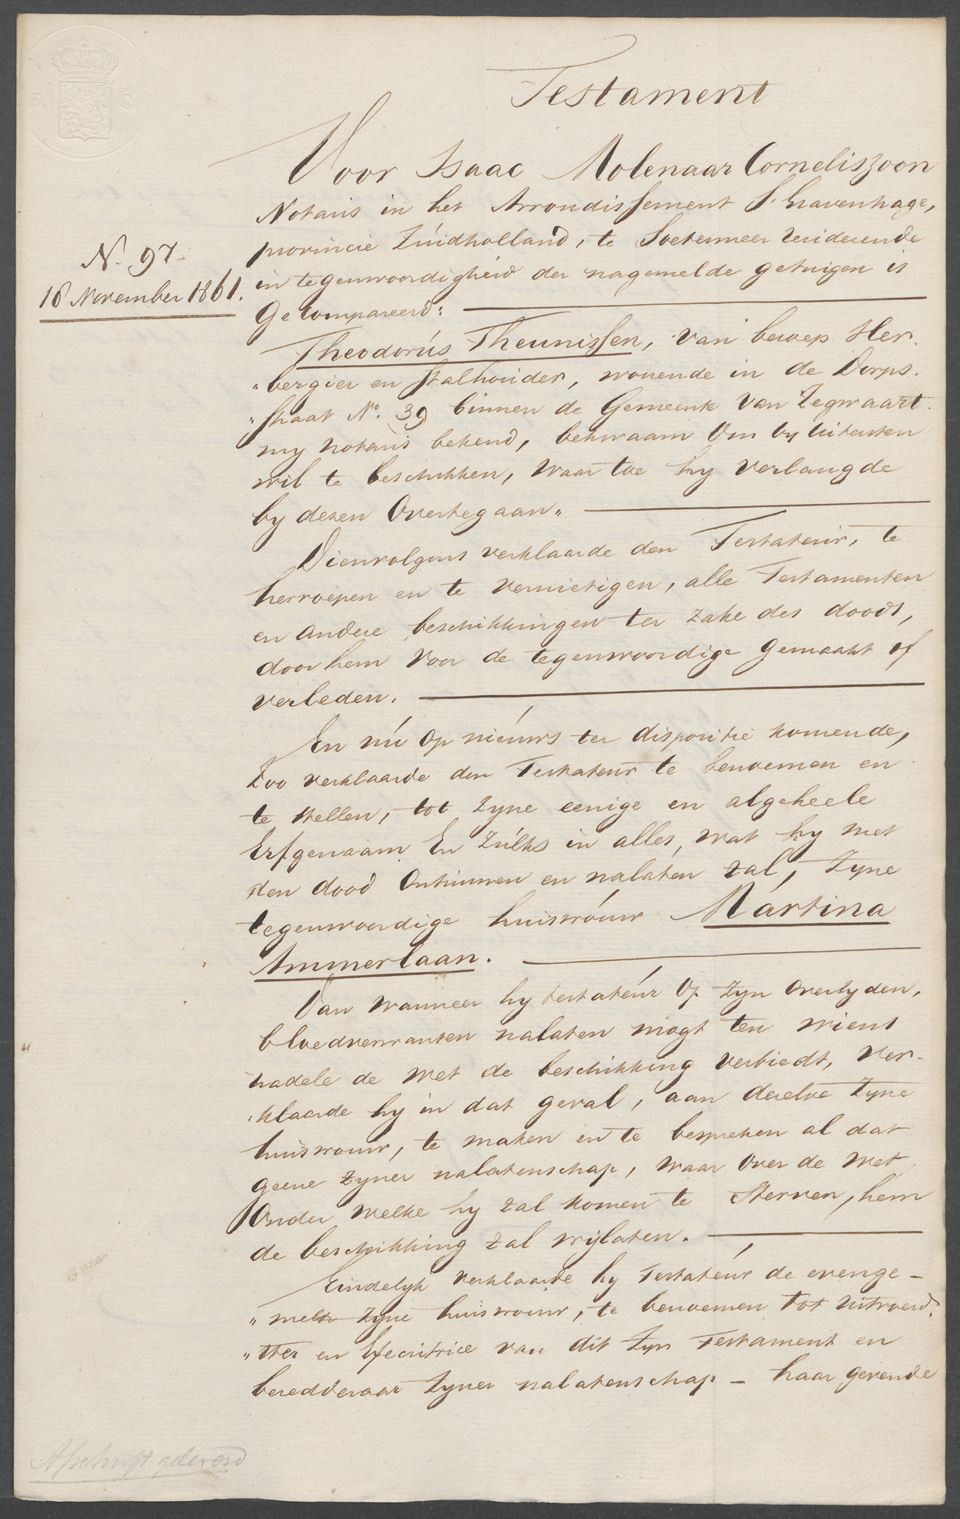 Testament
Voor Isaac Molenaar Corneliszoon
Notaris in het Arrondissement 'S Gravenhage,
provincie Zúidholland, te Soetermeer resideerende
in tegenwoordigheid der nagemelde getuigen is
Gecompareerd:
N. 97
18 November 1861.
Theodorús Theunissen, van beroep Her.
„bergier en Stalhouder, wonende in de Dorps.
„straat No. 39 binnen de Gemeente van Zegwaart.
my notaris bekend, bekwaam om by uitersten
wil te beschikken, waar toe hy verlangde
by dezen Overtegaan„
Dienvolgens verklaarde den Testateur, te
herroepen en te vernietigen, alle Testamenten
en andere beschikkingen ter zake des doods,
door hem voor de tegenwoordige gemaakt of
verleden.
En nú op nieúws ter dispositie komende,
Zoo verklaarde den Testateur te benoemen en
te stellen, tot zyne eenige en algeheele
Erfgenaam En Zúlks in alles, wat hy met
den dood Ontruimen en nalaten zal, zyne
tegenwoordige huisvrouw Martina
Ammerlaan.
Dan wanneer hy testateúr Op zyn Overlyden,
bloedverwanten nalaten mogt ten wiens
nadele de wet de beschikking verbiedt, ver-
:klaarde hy in dat geval, aan dezelve zyne
huisvrouw, te maken en te bespreken al dat
geene zyner nalatenschap, waar over de wet
Onder welke hy zal komen te Sterven, hem
de beschikking zal vrijlaten.
Eindelyk verklaarde hy Testateúr de evenge-
„melde zyne huisvrouw, te benoemen tot uitvoerd.
„ster en Execútrice van dit zyn Testament en
beredderaar zyner nalatenschap - haar gevende
Afschrift geleverd
50 C